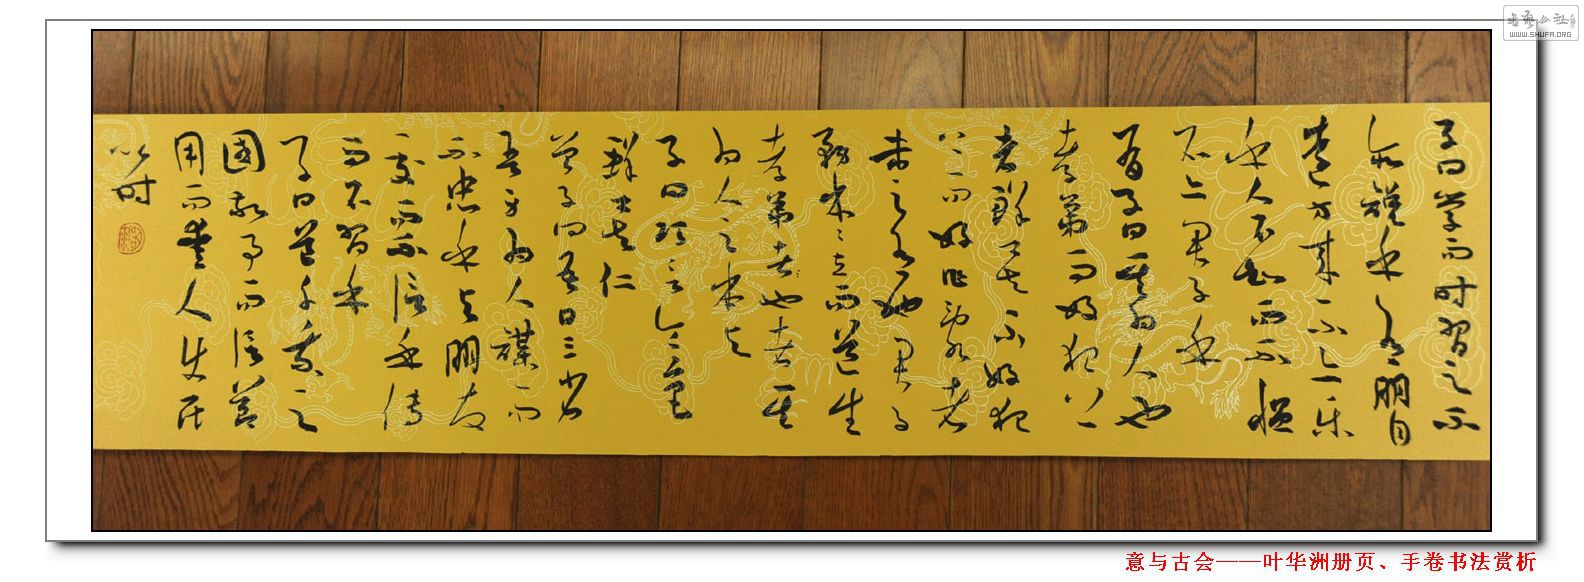 子曰學而时習之不
亦說乎有朋自
遠方来不亦樂
乎人不知而不愠
不亦君子乎
有子曰其為人也
孝弟而好犯上
者鮮矣不好犯
上而好作亂者
未之有也君子
務本〻立而道生
孝弟者也者其
為人之本与
子曰巧言令色
鮮矣仁
曾子曰吾日三省
吾身為人謀而
不忠乎与朋友
交而不信乎傳
而不習乎
子曰道千乘之
國敬事而信節
用而愛人使民
以时
书艺公社
WWW.SHUFA.ORG
意与古会——叶华洲册页、手卷书法赏析